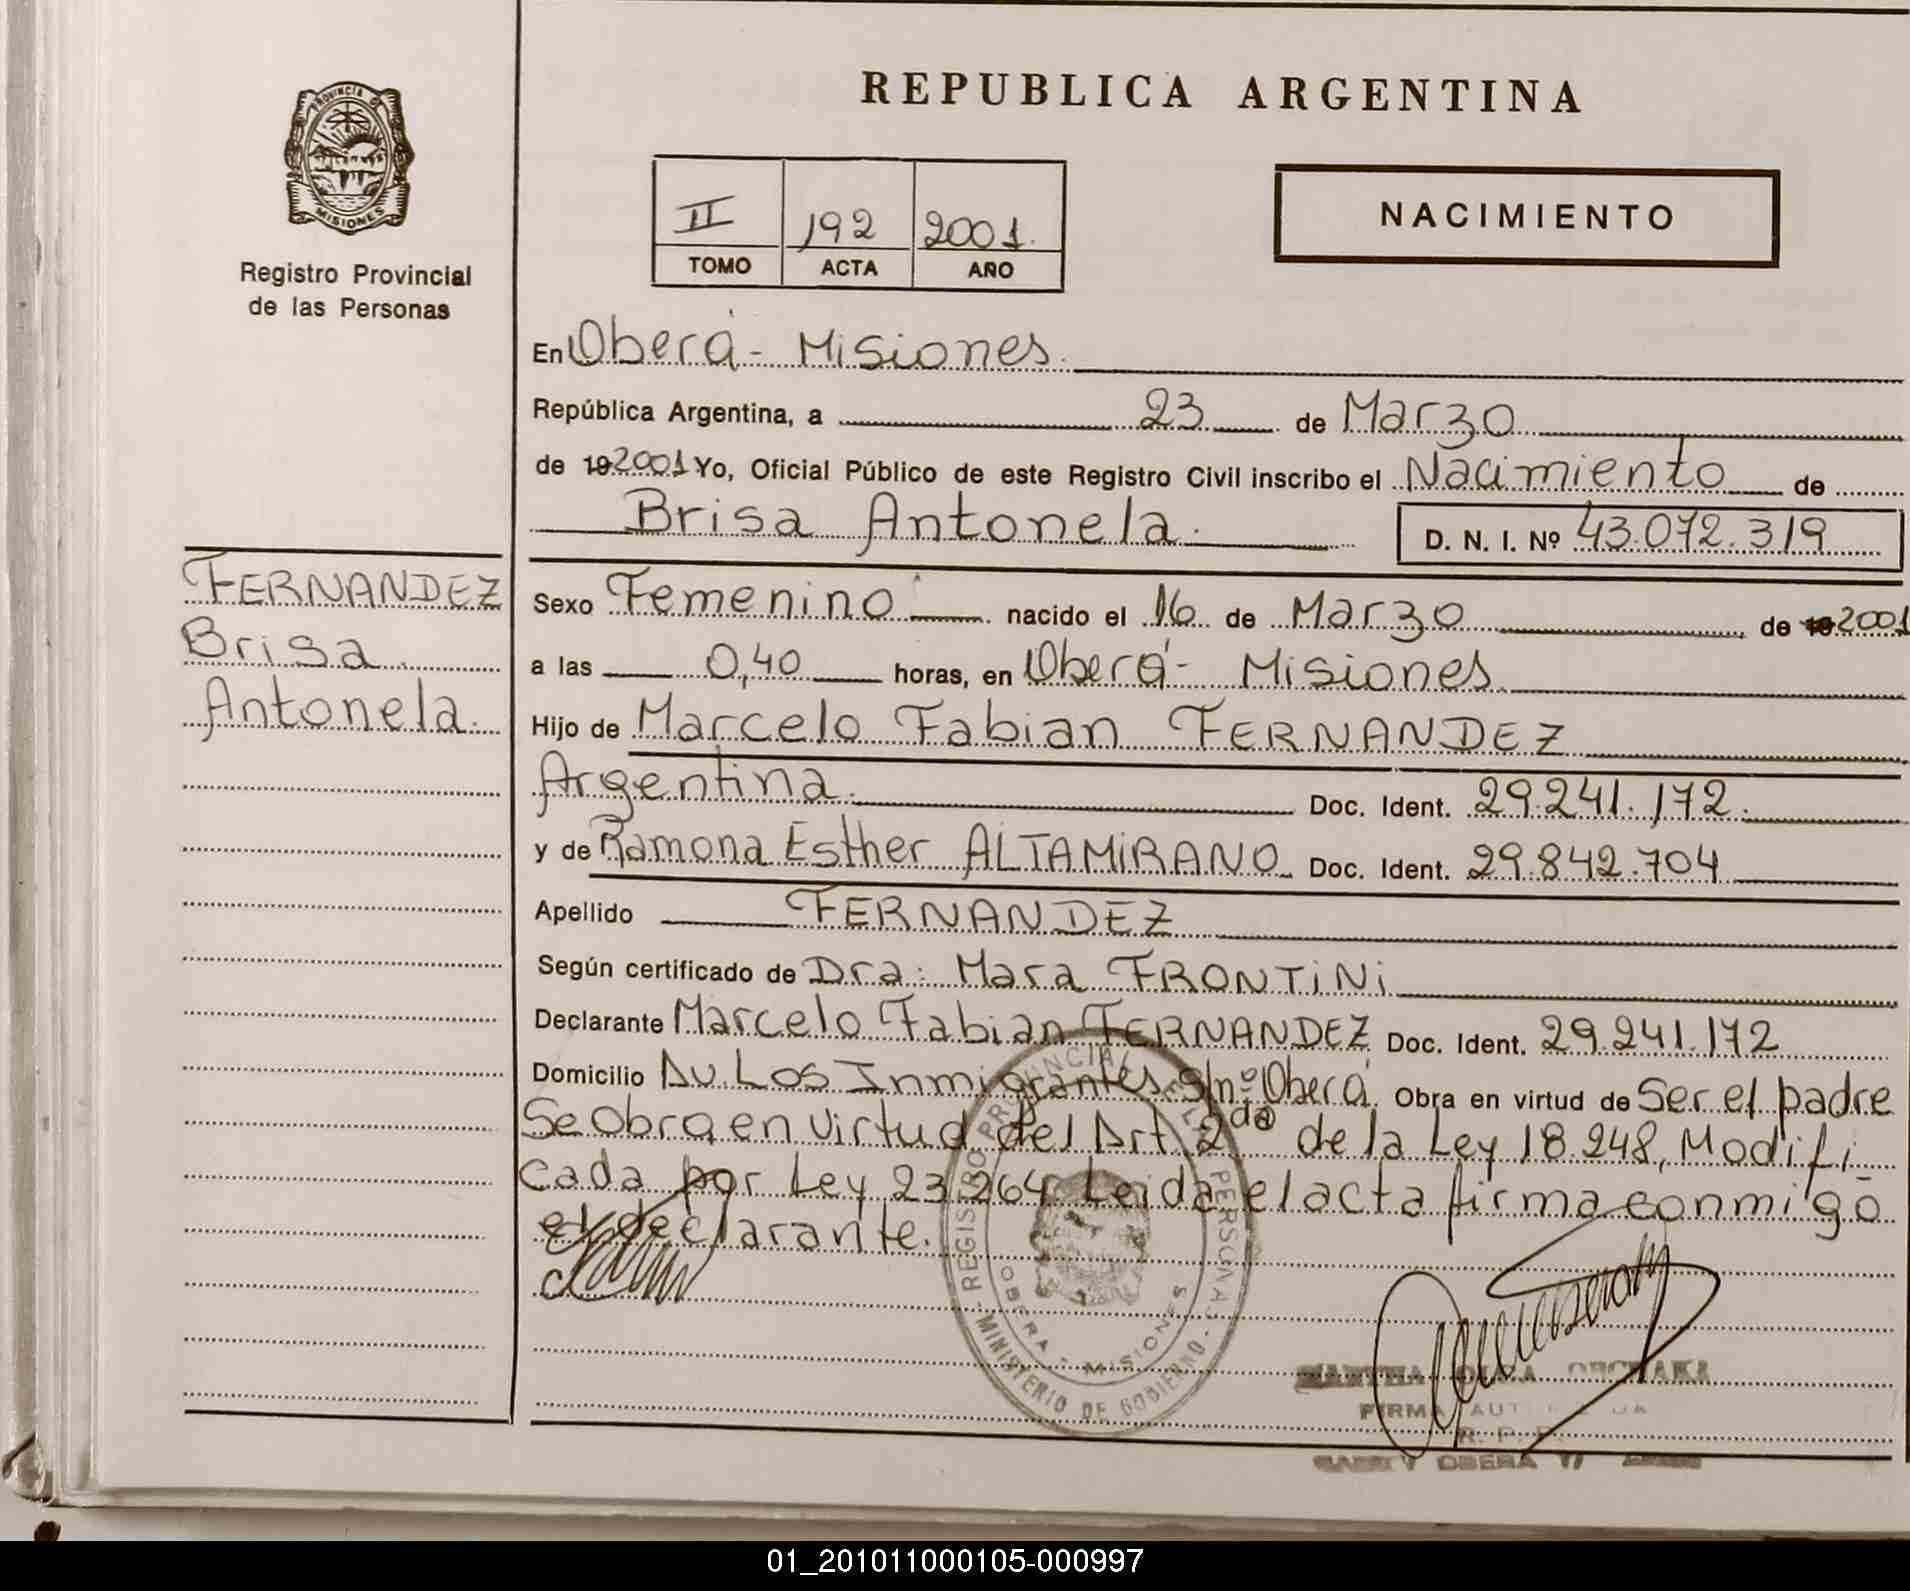 REPUBLICA ARGENTINA
PROVINCIA DE
MISIONES
Registro Provincial
de las Personas
II 192 2001.
TOMO ACTA AÑO
NACIMIENTO
En Oberá - Misiones.
República Argentina, a 23 de Marzo
de 19 2001 Yo, Oficial Público de este Registro Civil inscribo el Nacimiento de
Brisa Antonela. D. N. I. Nº 43.072.319
FERNANDEZ
Brisa
Antonela.
Sexo Femenino nacido el 16 de Marzo de 19 2001
a las 0,40 horas, en Oberá - Misiones.
Hijo de Marcelo Fabian FERNANDEZ
Argentina. Doc. Ident. 29.241.172.
y de Ramona Esther ALTAMIRANO Doc. Ident. 29.842.704
Apellido FERNANDEZ
Según certificado de Dra: Mara FRONTiNi
Declarante Marcelo Fabian FERNANDEZ Doc. Ident. 29.241.172
Domicilio Av. Los Inmigrantes s/nº Oberá. Obra en virtud de Ser el padre
Se Obra en virtud del Art. 2da de la Ley 18.248, Modifi
cada por Ley 23.264 Leida el acta firma conmigo
el declarante.
REGISTRO PROVINCIAL DE LAS PERSONAS
OBERA - MISIONES
MINISTERIO DE GOBIERNO
MARTHA OLGA
FIRMA
R. P. P.
OBERA
01_201011000105-000997